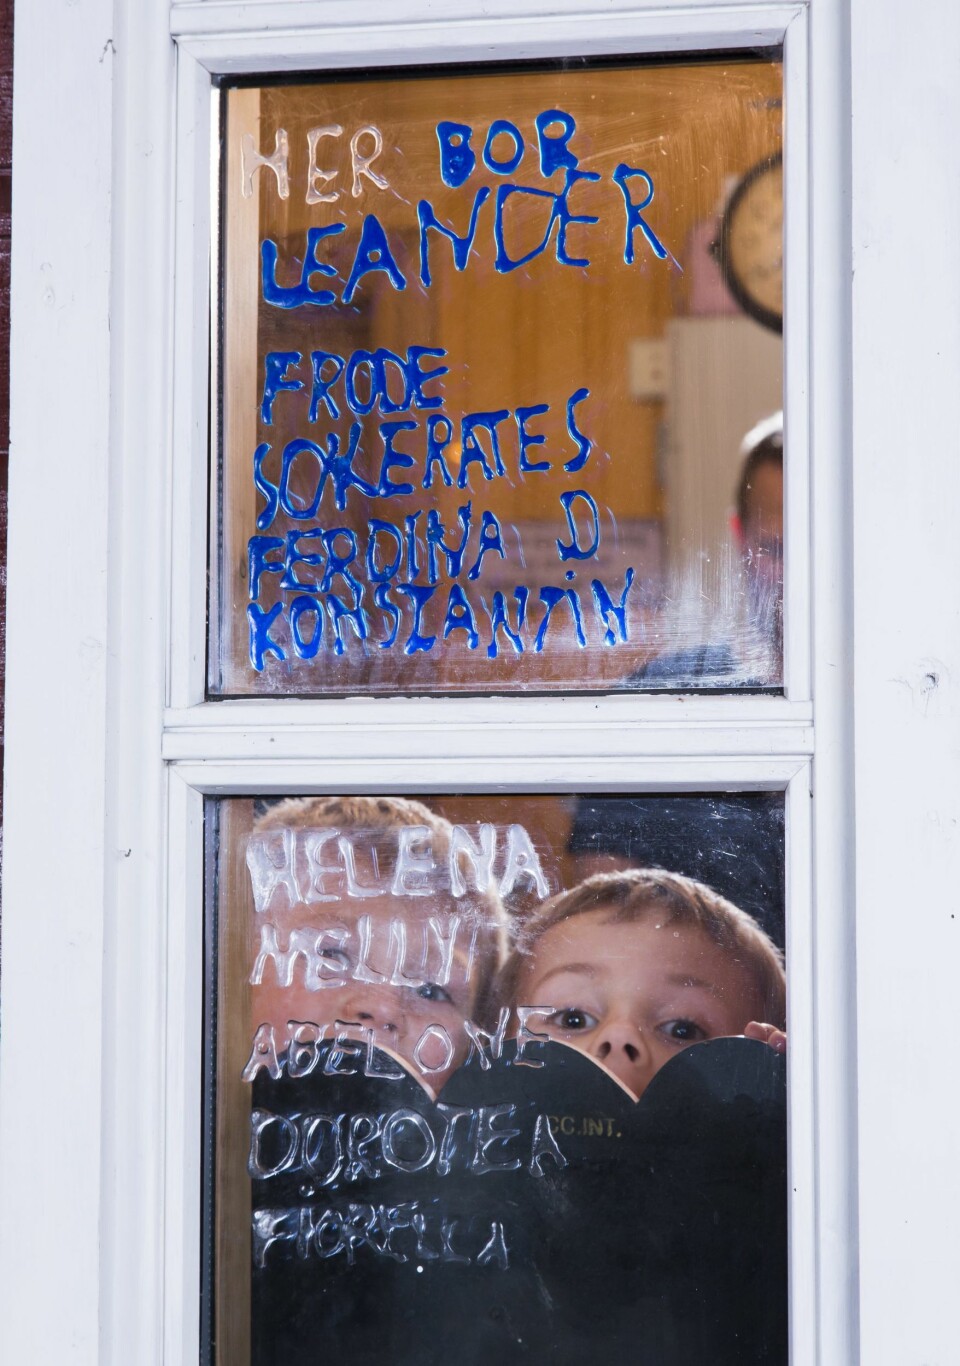 HER BOR
LEANDER
FRODE
SOKERATES
FERDINA D
KONSTANTIN
HELENA
MELLY
ABELONE
DOROTEA
FIORELLA
CC.INT.